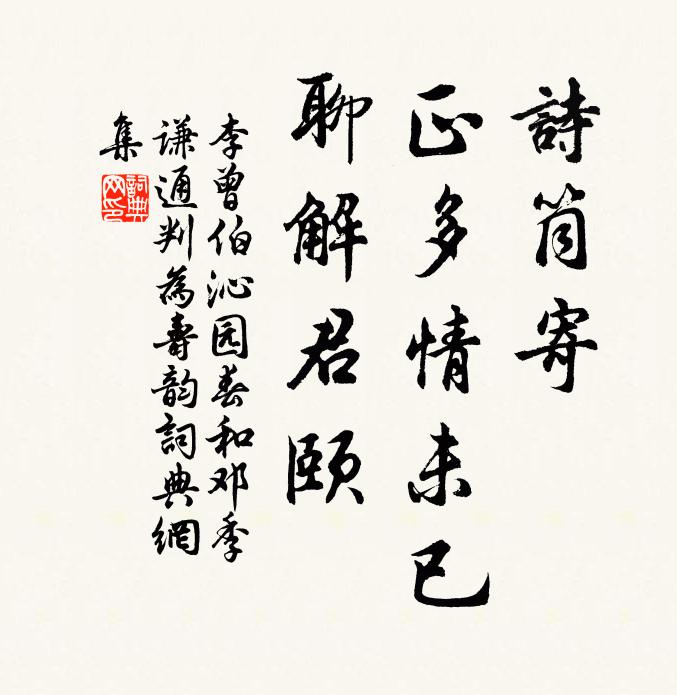 詩筒寄
正多情未已
聊解君頤
李曾伯沁园春和邓季
谦通判為壽韵詞典網
集
詞典网印